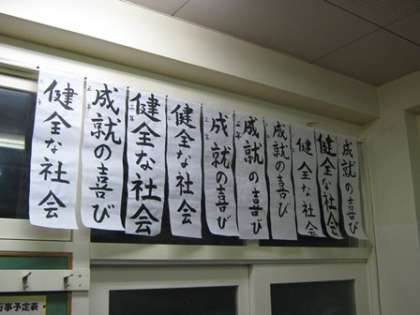 健全な社会
成就の喜び
健全な社会
健全な社会
成就の喜び
成就の喜び
成就の喜び
健全な社会
健全な社会
成就の喜び
行事予定表